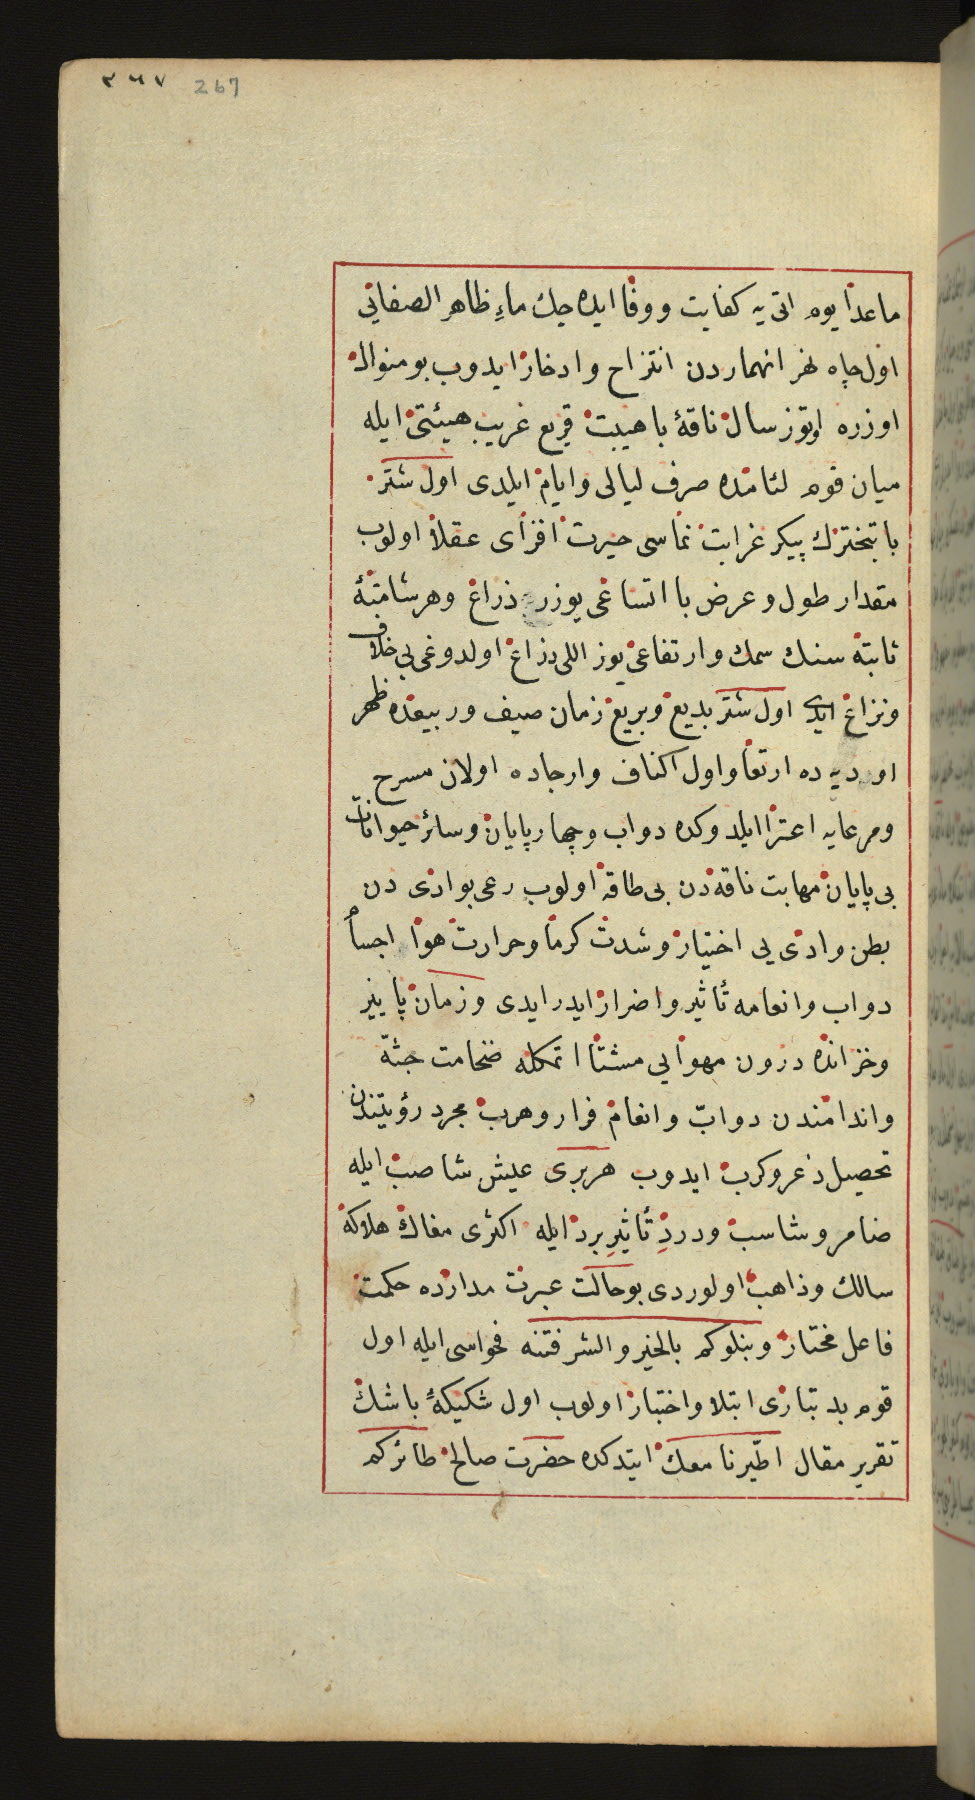 ٢٦٧ 267
ماعدا يوم اتى يه كفايت ووفا ايده جك ماءِ ظاهر الصفائى
اول چاه نهر انهماردن انتزاح وادخار ايدوب بو منوال
اوزره اوتوز سال ناقهٔ باهيبت قريع غريب هيئتى ايله
ميان قوم لئامده صرف ليالى وايام ايلدى اول شتر
باتبخترك پيكر غرابت نماسى حيرت افزاى عقلا اولوب
مقدار طول وعرض با اتساعى يوزر ذراع وهر شامتهٔ
ثابته سنك سمك وارتفاعى يوز اللى ذراع اولدوغى بى خلاف
ونزاع ايدى اول شتر بديع وبريع زمان صيف وربيعده ظهر
اوديه ده ارتعا واول اكناف وارجاده اولان مسرح
ومرعايه اعتزا ايلدوكده دواب وچهارپايان وسائر حيوانات
بى پايان مهابت ناقه دن بى طاقه اولوب رعى بوادى دن
بطن وادى يى اختيار وشدت كرما وحرارت هوا اجسام
دواب وانعامه تأثير واضرار ايدر ايدى وزمان پاييز
وخزانده درون مهوايى مشتا اتمكله ضخامت جثهّ
واندامندن دوابّ وانعام فرار وهرب مجرد رؤيتندن
تحصيل ذعر وكرب ايدوب هربرى عيش شاصب ايله
ضامر وشاسب ودردِ تأثيرِ برد ايله اكثرى مغاك هلاكه
سالك وذاهب اولوردى بو حالت عبرت مدارده حكمت
فاعل مختار ونبلوكم بالخير والشر فتنه فحواسى ايله اول
قوم بد تبارى ابتلا واختبار اولوب اول شكيكهٔ باشك
تقرير مقال اطّيرنا معك ايتدكده حضرت صالح طائركم